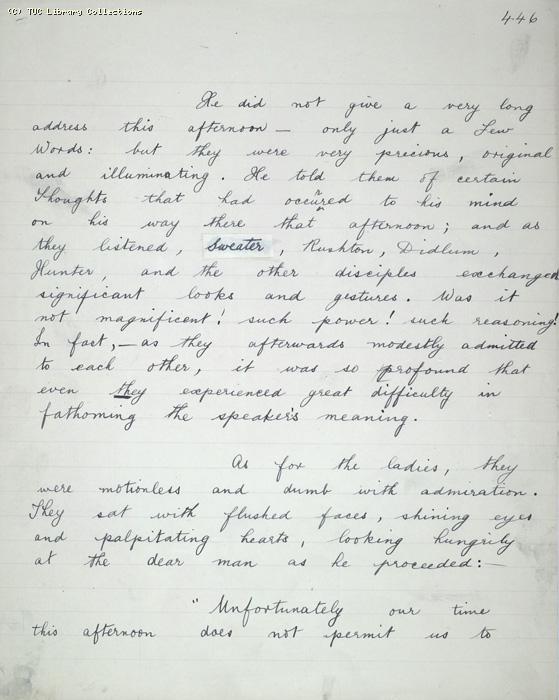 (C) TUC Library Collections
446
He did not give a very long
address this afternoon — only just a Few
Words: but they were very precious, original
and illuminating. He told them of certain
Thoughts that had occurred to his mind
on his way there that afternoon; and as
they listened, Sweater, Rushton, Didlum,
Hunter, and the other disciples exchanged
significant looks and gestures. Was it
not magnificent! such power! such reasoning!
In fact, — as they afterwards modestly admitted
to each other, it was so profound that
even they experienced great difficulty in
fathoming the speaker's meaning.
As for the ladies, they
were motionless and dumb with admiration.
They sat with flushed faces, shining eyes
and palpitating hearts, looking hungrily
at the dear man as he proceeded:—
"Unfortunately our time
this afternoon does not permit us to